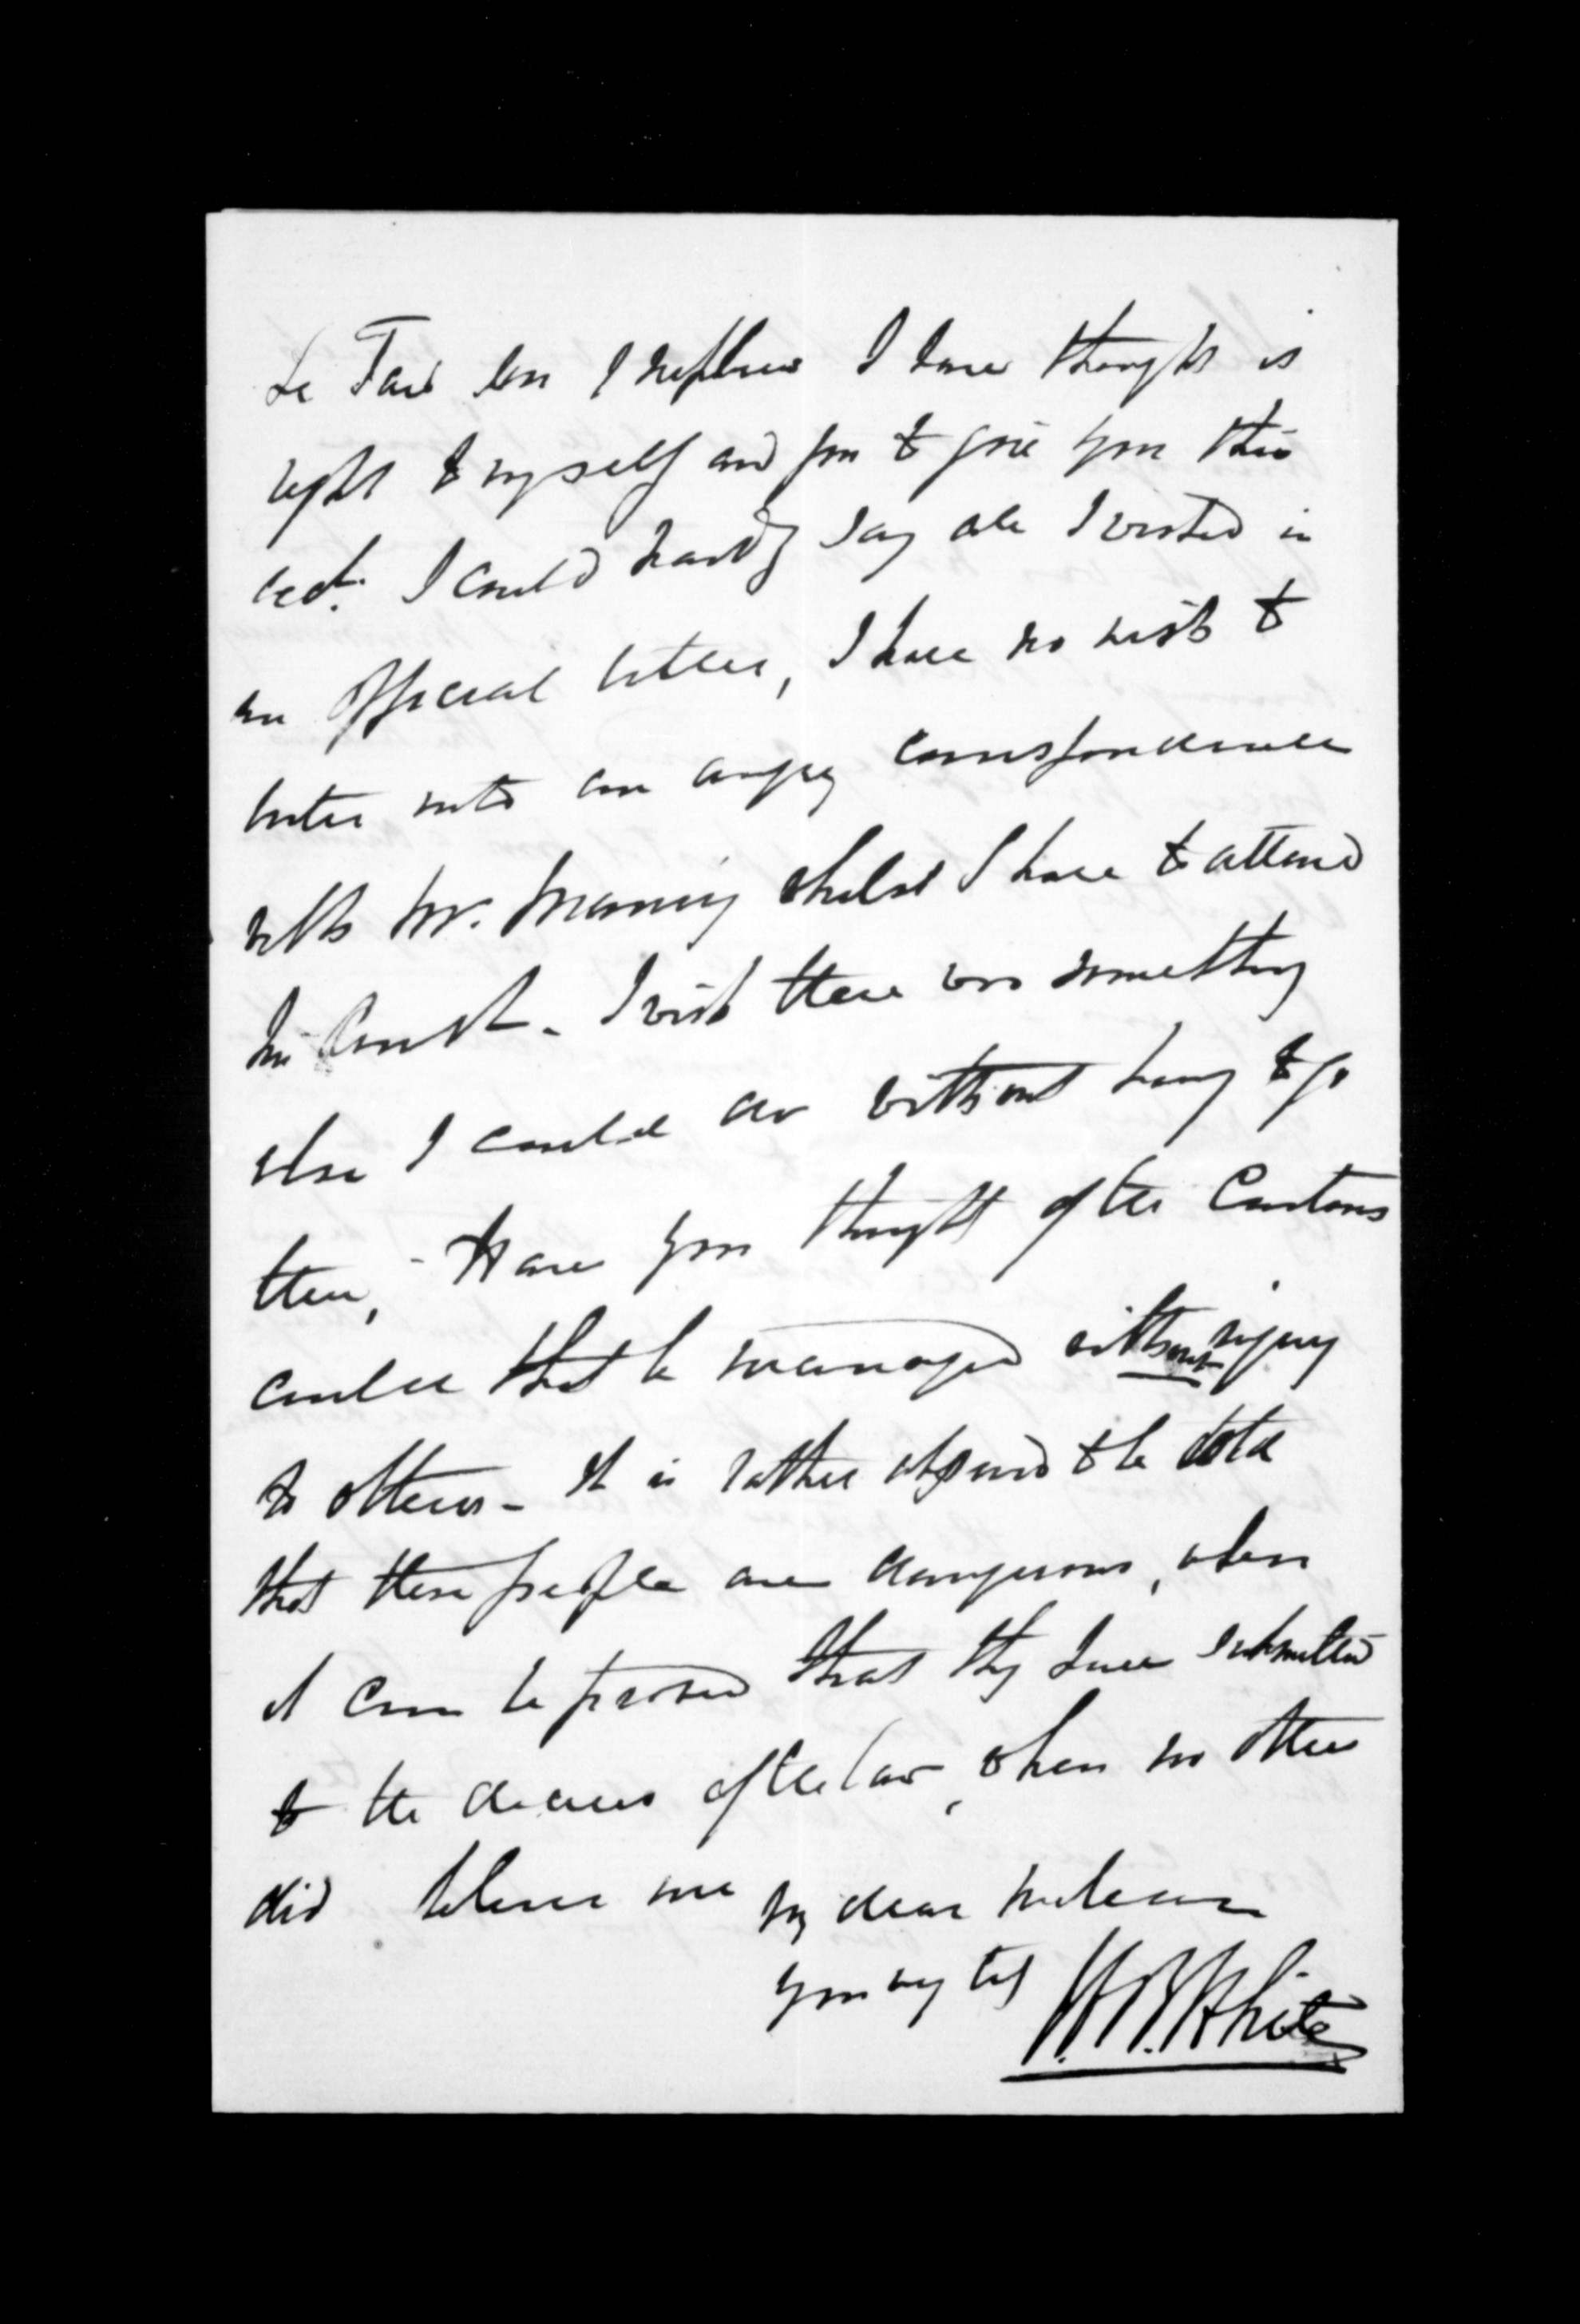 Te Tawa his nephew I have thought it
right to myself and you to give you this
act. I could hardly say all I wished in
an official letter, I have no wish to
enter into an angry correspondence
with Mr. Manning whilst I have to attend
his Court - I wish there was something
else I could do without having to go
there, - Have you thought of the Customs
could that be managed without injury
to others - It is rather absurd to be told
that these people are dangerous, when
it can be proved that they have submitted
to the decrees of the law, when no other
did believe me my dear McLean
your very truly H. B. White